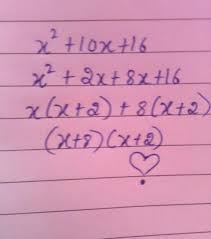 x² + 10x + 16
x² + 2x + 8x + 16
x(x+2) + 8(x+2)
(x+8)(x+2)